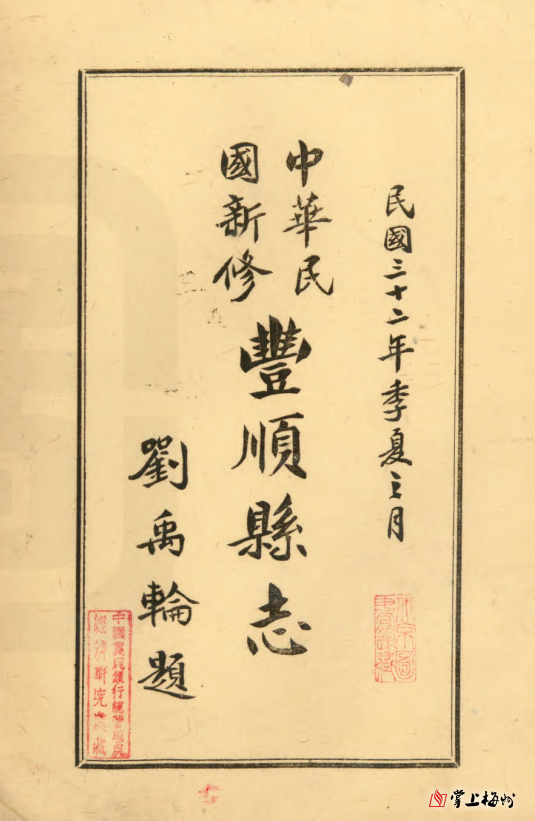 民國三十二年季夏之月
中華民
國新修
豐順縣志
劉禹輪題
中國農民銀行總管理處
經濟研究處藏
掌上梅州